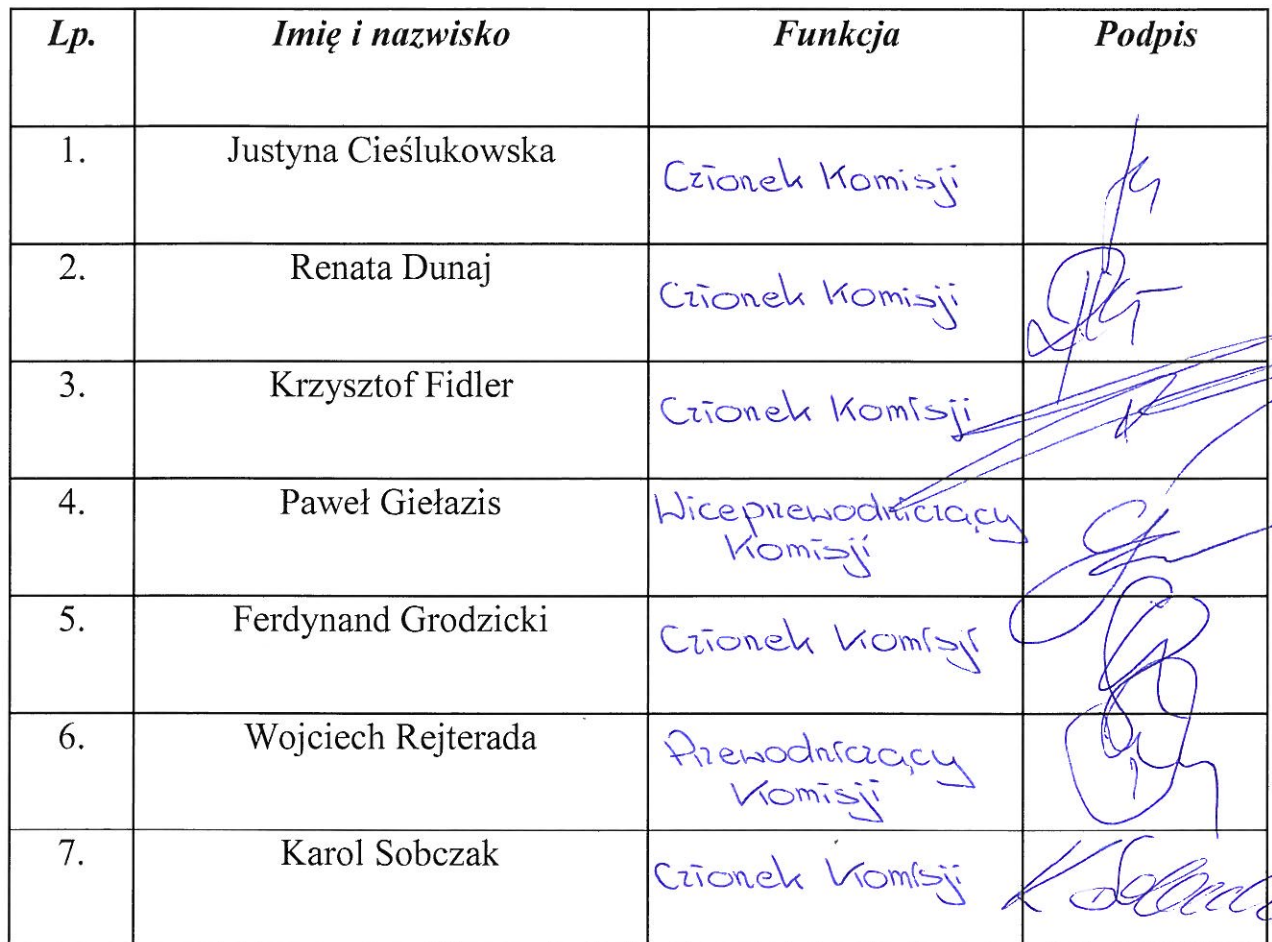 Lp. Imię i nazwisko Funkcja Podpis
1. Justyna Cieślukowska Członek Komisji
2. Renata Dunaj Członek Komisji
3. Krzysztof Fidler Członek Komisji
4. Paweł Giełazis Wiceprzewodniczący
Komisji
5. Ferdynand Grodzicki Członek Komisji
6. Wojciech Rejterada Przewodniczący
Komisji
7. Karol Sobczak Członek Komisji